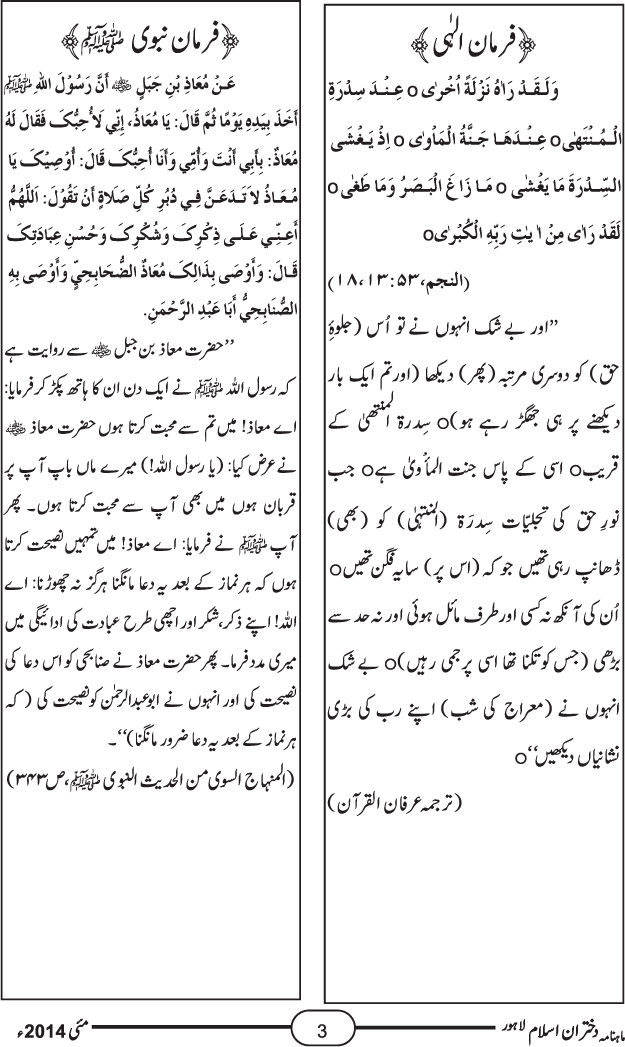 ﴿فرمان الٰہی﴾
وَلَـقَـدْ رَاٰهُ نَزْلَةً اُخْرٰی ٥ عِنْـدَ سِدْرَةِ
الْـمُـنْتَهٰی٥ عِـنْـدَهَـا جَنَّةُ الْمَاْوٰی ٥ اِذْ يَـغْشَی
السِّدْرَةَ مَا يَغْشٰی ٥ مَـا زَاغَ الْبَصَرُ وَمَا طَغٰی ٥
لَقَدْ رَاٰی مِنْ اٰيٰتِ رَبِّهِ الْکُبْرٰی٥
(النجم، ۵۳: ۱۳، ۱۸)
’’اور بے شک انہوں نے تو اُس (جلوۂِ
حق) کو دوسری مرتبہ (پھر) دیکھا (اور تم ایک بار
دیکھنے پر ہی جھگڑ رہے ہو)٥ سِدرۃ المنتھیٰ کے
قریب٥ اسی کے پاس جنت الماْویٰ ہے٥ جب
نورِ حق کی تجلیّات سِدرَۃ (المنتہٰی) کو (بھی)
ڈھانپ رہی تھیں جو کہ (اس پر) سایہ فگن تھیں٥
اُن کی آنکھ نہ کسی اور طرف مائل ہوئی اور نہ حد سے
بڑھی (جس کو تکنا تھا اسی پر جمی رہیں)٥ بے شک
انہوں نے (معراج کی شب) اپنے رب کی بڑی
نشانیاں دیکھیں‘‘٥
(ترجمہ عرفان القرآن)
﴿فرمان نبوی ﷺ﴾
عَـنْ مُعَاذِ بْنِ جَبَلٍ رضي الله عنه أَنَّ رَسُوْلَ اللهِ ﷺ
أَخَذَ بِيَدِهِ يَوْمًا ثُمَّ قَالَ: يَا مُعَاذُ، إِنِّي لَأُحِبُّکَ فَقَالَ لَهُ
مُعَاذٌ: بِأَبِي أَنْتَ وَأُمِّي وَأَنَا أُحِبُّکَ قَالَ: أُوْصِيْکَ يَا
مُـعَـاذُ لَا تَـدَعَـنَّ فِـي دُبُرِ کُلِّ صَلَاةٍ أَنْ تَقُوْلَ: اَللّٰهُمَّ
أَعِنِّي عَـلَـی ذِکْرِکَ وَشُکْرِکَ وَحُسْنِ عِبَادَتِکَ
قَـالَ: وَأَوْصَی بِذَالِکَ مُعَاذٌ الصُّحَابِحِيَّ وَأَوْصَی بِهِ
الصُّنَابِحِيُّ أَبَا عَبْدِ الرَّحْمٰنِ.
’’حضرت معاذ بن جبل رضي الله عنه سے روایت ہے
کہ رسول اللہ ﷺ نے ایک دن ان کا ہاتھ پکڑ کر فرمایا:
اے معاذ! میں تم سے محبت کرتا ہوں حضرت معاذ رضي الله عنه
نے عرض کیا: (یا رسول اللہ!) میرے ماں باپ آپ پر
قربان ہوں میں بھی آپ سے محبت کرتا ہوں۔ پھر
آپ ﷺ نے فرمایا: اے معاذ! میں تمہیں نصیحت کرتا
ہوں کہ ہر نماز کے بعد یہ دعا مانگنا ہرگز نہ چھوڑنا: اے
اللہ! اپنے ذکر، شکر اور اچھی طرح عبادت کی ادائیگی میں
میری مدد فرما۔ پھر حضرت معاذ نے صنابحی کو اس دعا کی
نصیحت کی اور انہوں نے ابوعبدالرحمٰن کو نصیحت کی (کہ
ہر نماز کے بعد یہ دعا ضرور مانگنا)‘‘۔
(المنہاج السوی من الحدیث النبوی ﷺ، ص ۳۴۳)
ماہنامہ دختران اسلام لاہور
3
مئی 2014ء